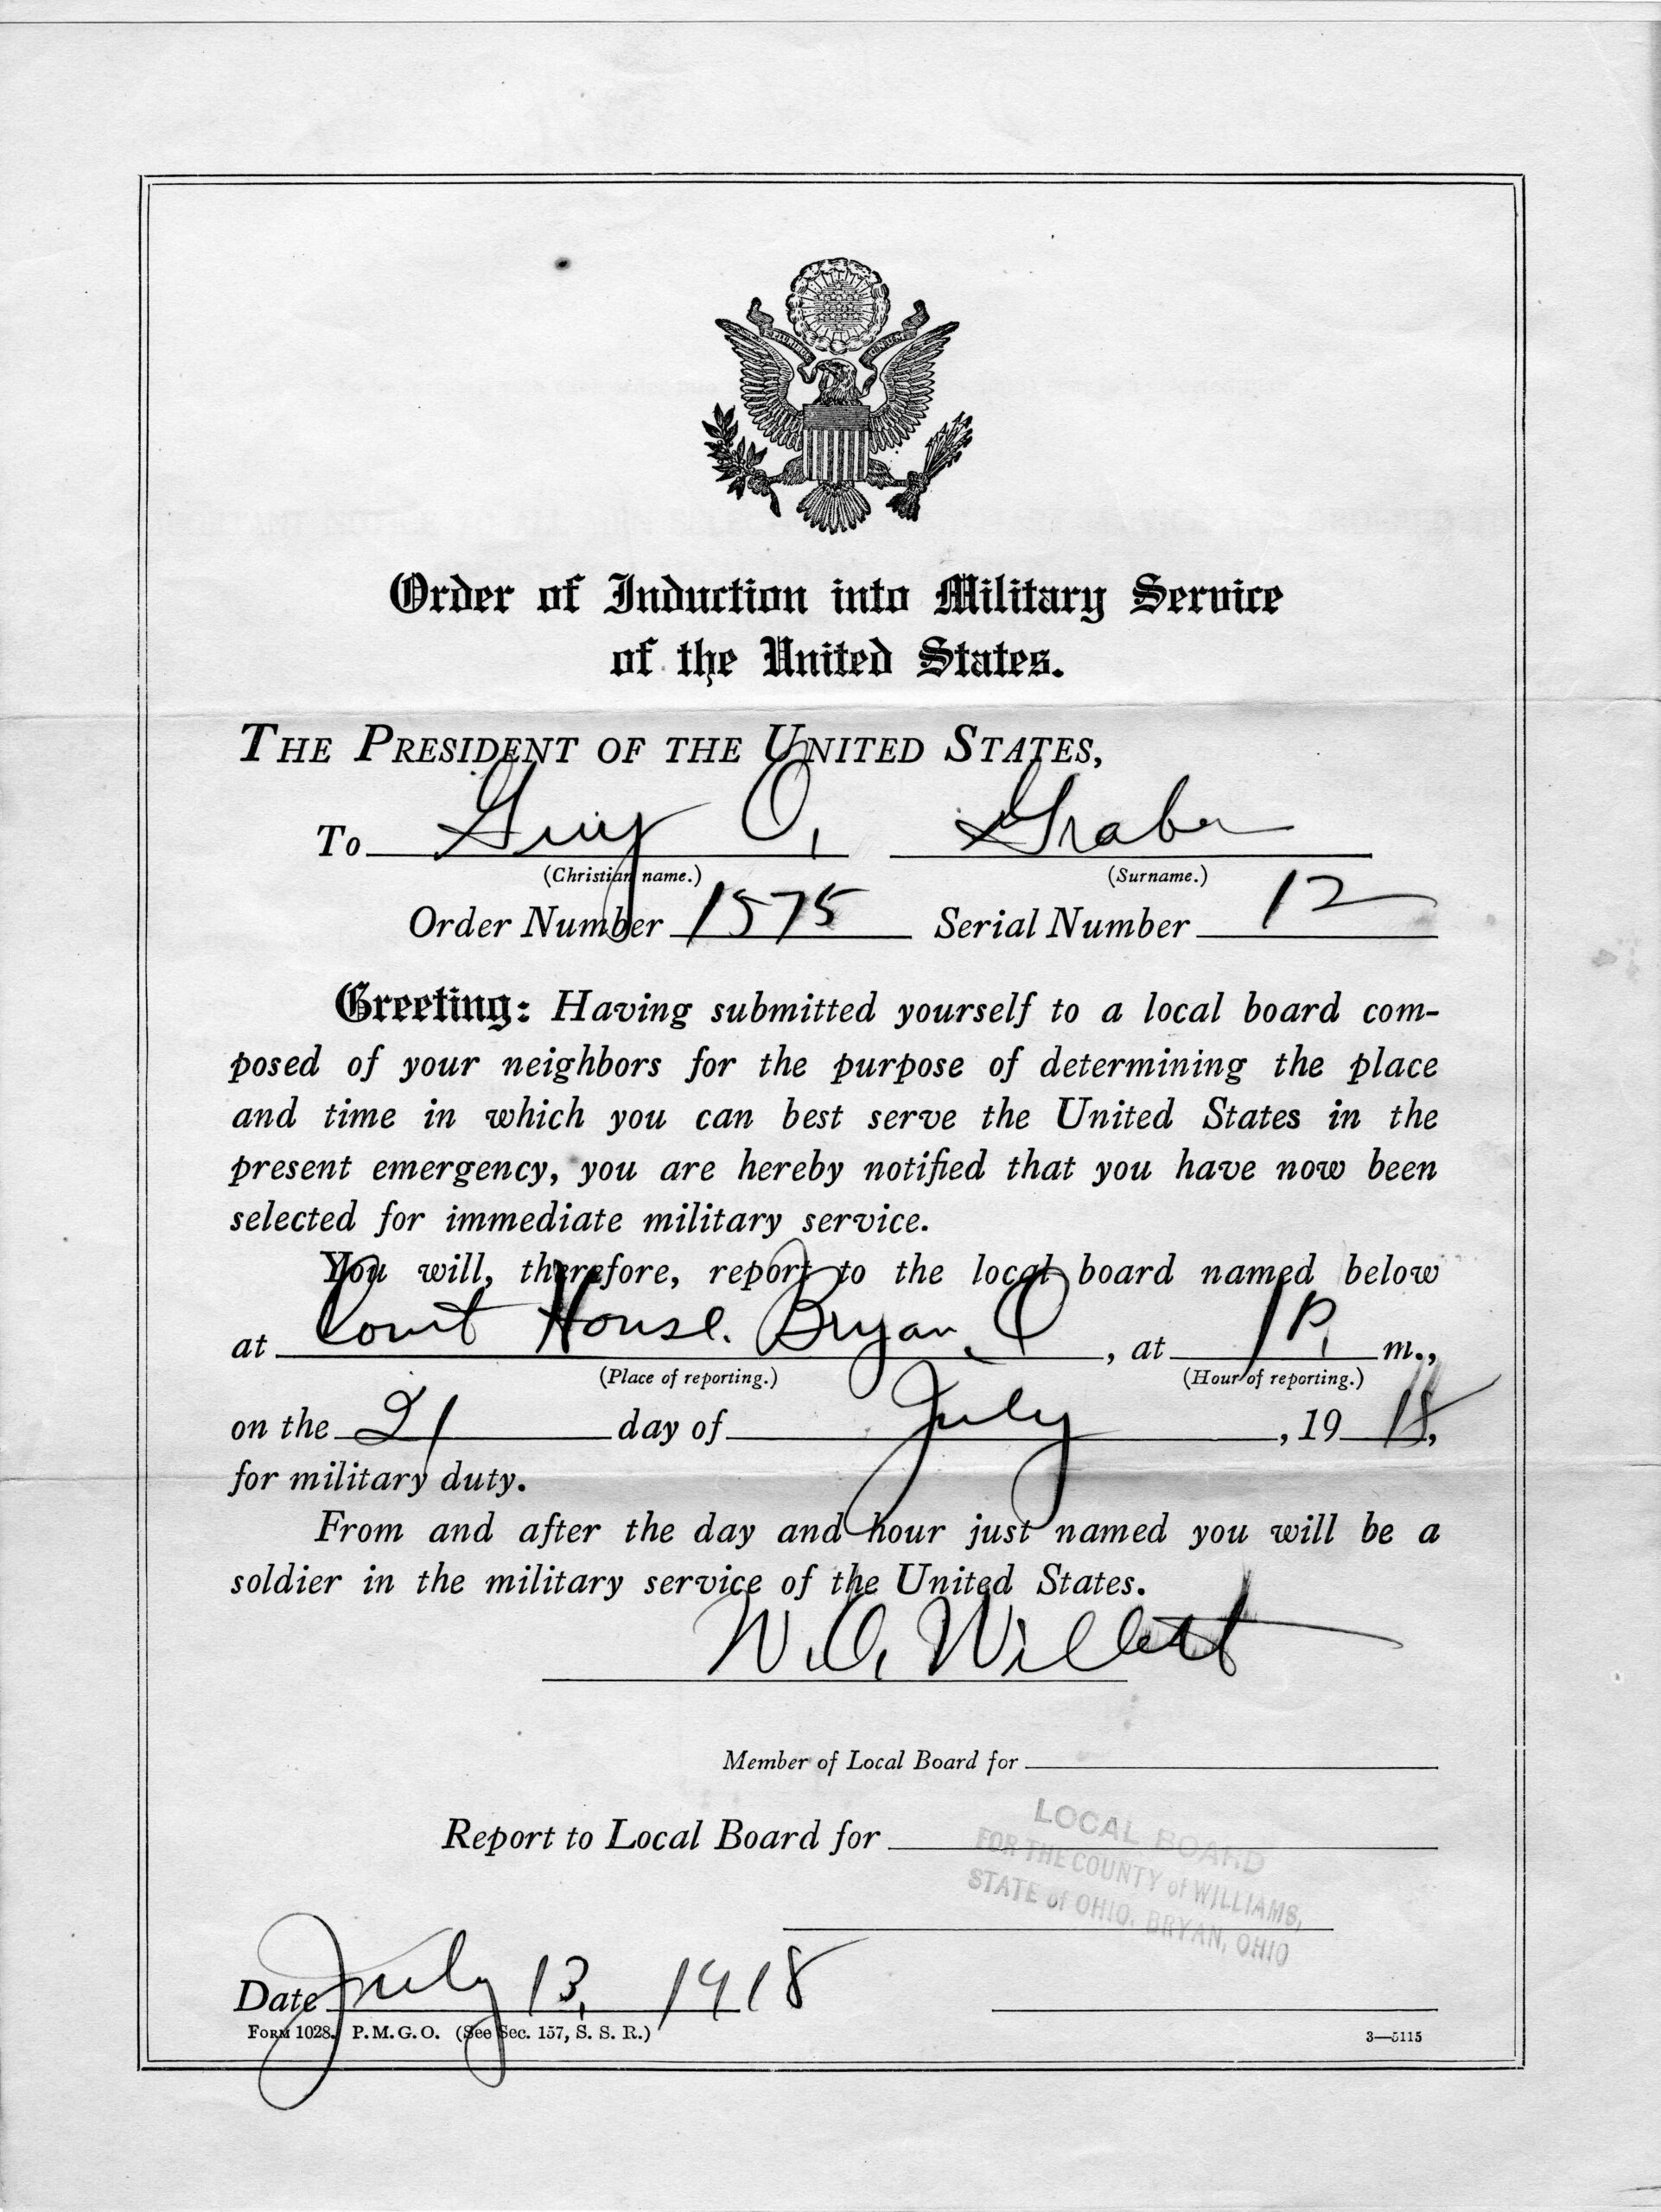 E PLURIBUS UNUM
Order of Induction into Military Service
of the United States.
THE PRESIDENT OF THE UNITED STATES,
To Guy O. Graber
(Christian name.) (Surname.)
Order Number 1575 Serial Number 12
Greeting: Having submitted yourself to a local board com-
posed of your neighbors for the purpose of determining the place
and time in which you can best serve the United States in the
present emergency, you are hereby notified that you have now been
selected for immediate military service.
You will, therefore, report to the local board named below
at Court House. Bryan, O, at 1 P. m.,
(Place of reporting.) (Hour of reporting.)
on the 21 day of July, 1918,
for military duty.
From and after the day and hour just named you will be a
soldier in the military service of the United States.
W.O. Willett
Member of Local Board for
Report to Local Board for
LOCAL BOARD
FOR THE COUNTY of WILLIAMS,
STATE of OHIO, BRYAN, OHIO
Date July 13, 1918
FORM 1028. P.M.G.O. (See Sec. 157, S. S. R.) 3—5115